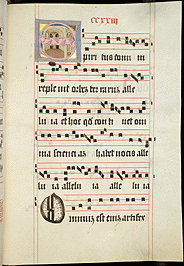 ccxxiii
Spiritus domini
reple uit orbez terraruz alle
lu ia et hoc qd conti net om
nia scienciaz habet uocis alle
lu ia allelu ia alle lu ia
Omniuz est eniz artifex